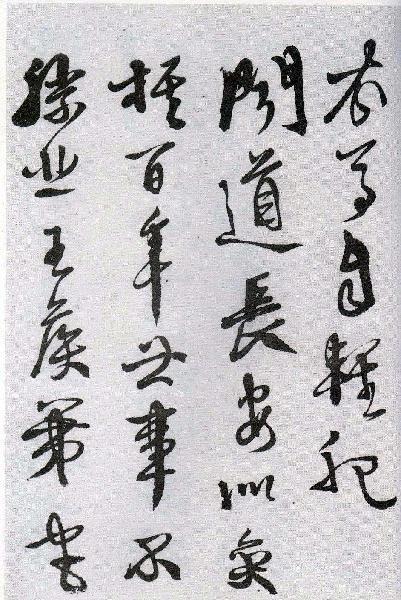 衣馬自輕肥
聞道長安似弈
棋百年世事不
勝悲王侯第宅